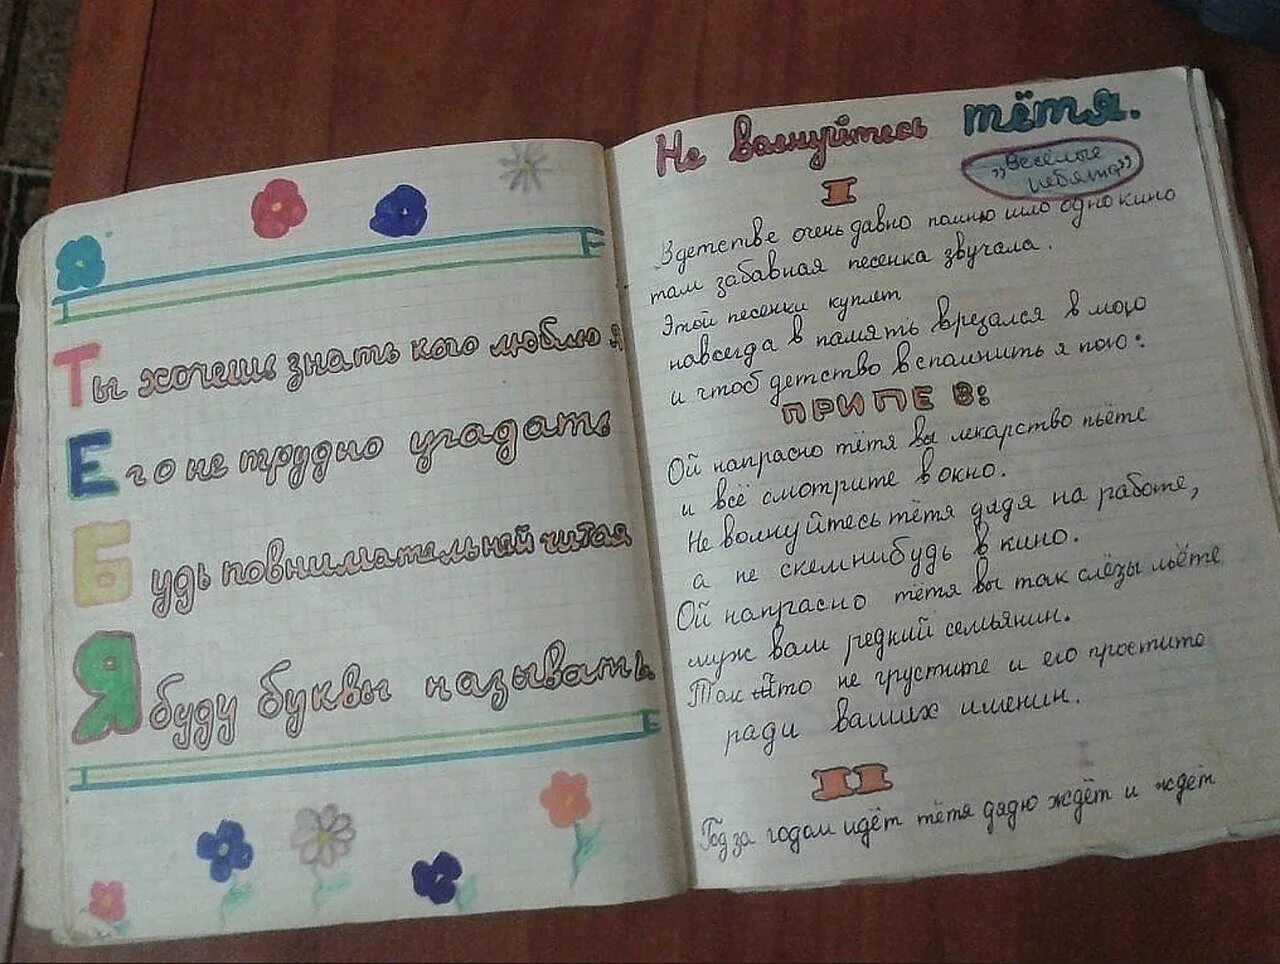 Ты хочешь знать кого люблю я
Его не трудно угадать
Будь повнимательней читая
Я буду буквы называть.
Не волнуйтесь тётя.
„Весёлые
ребята”
I
В детстве очень давно помню шло одно кино
там забавная песенка звучала.
Этой песенки куплет
навсегда в память врезался в мою
и чтоб детство вспомнить я пою:
ПРИПЕВ:
Ой напрасно тётя вы лекарство пьёте
и всё смотрите в окно.
Не волнуйтесь тётя дядя на работе,
а не скем нибудь в кино.
Ой напрасно тётя вы так слёзы льёте
муж вам редкий семьянин.
Так что не грустите и его простите
ради ваших именин.
II
Год за годом идёт тётя дядю ждёт и ждёт